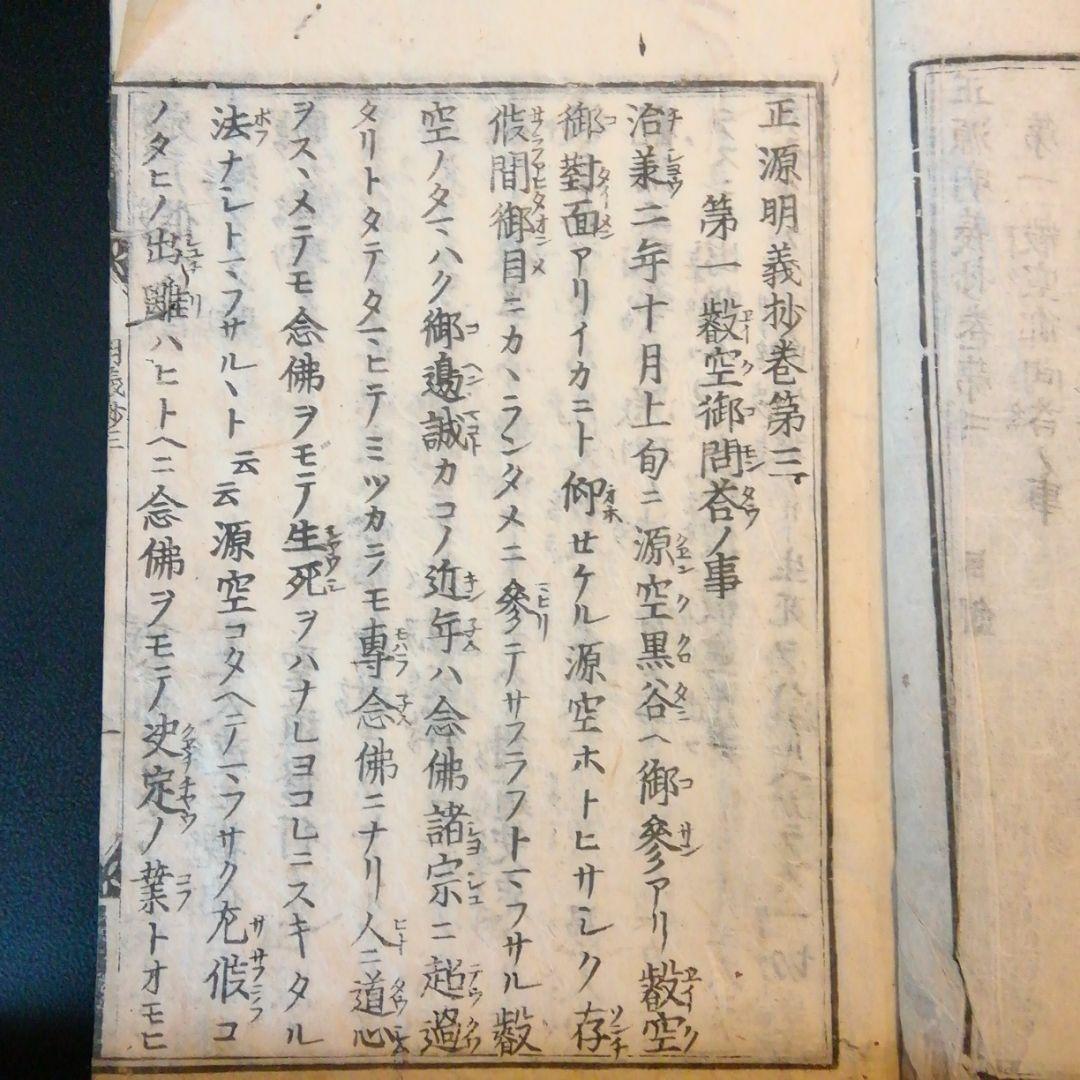 正源明義抄巻第三
第一叡空御問荅ノ事
治義二年十月上旬ニ源空黒谷ヘ御參アリ叡空
御對面アリイカニト仰せケル源空ホトヒサシク存
候間御目ニカヽランタメニ參テサフラフトマフサル叡
空ノタマハク御邉誠カコノ近年ハ念佛諸宗ニ超過
タリトタテタマヒテミツカラモ專念佛ニナリ人ニ道心
ヲスヽメテモ念佛ヲモテ生死ヲハナレヨコレニスキタル
法ナシトマフサルヽト云云源空コタヘテマフサク尤候コ
ノタヒノ出離ハヒトヘニ念佛ヲモテ決定ノ業トオモヒ
明義抄三